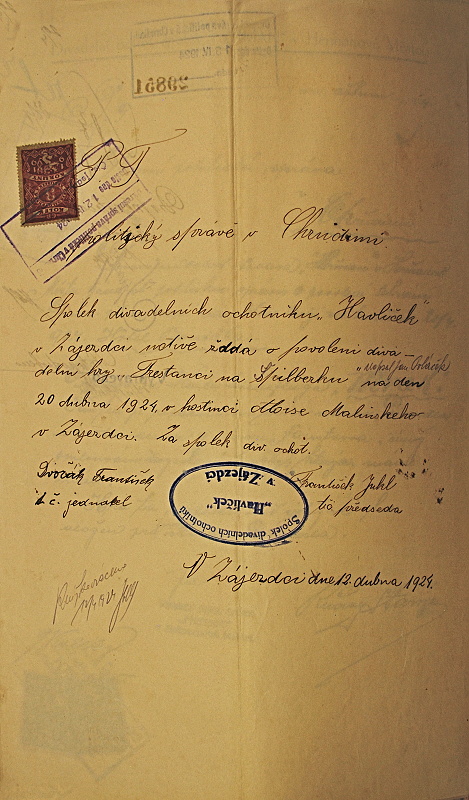 29861
P T
politický správě v Chrudimi.
Spolek divadelních ochotníku „Havlíček"
v Zájezdci uctivě žádá o povolení diva-
delní hry „Trestanci na Špilberku" napsal Jan na den
20 dubna 1924. v hostinci Aloise Malinského
v Zájezdci. Za spolek div. ochot.
Dvořák František František Jukl
t č. jednatel tč předseda
Spolek divadelních ochotníků
„Havlíček"
v Zájezdci
V Zájezdci dne 12. dubna 1924.